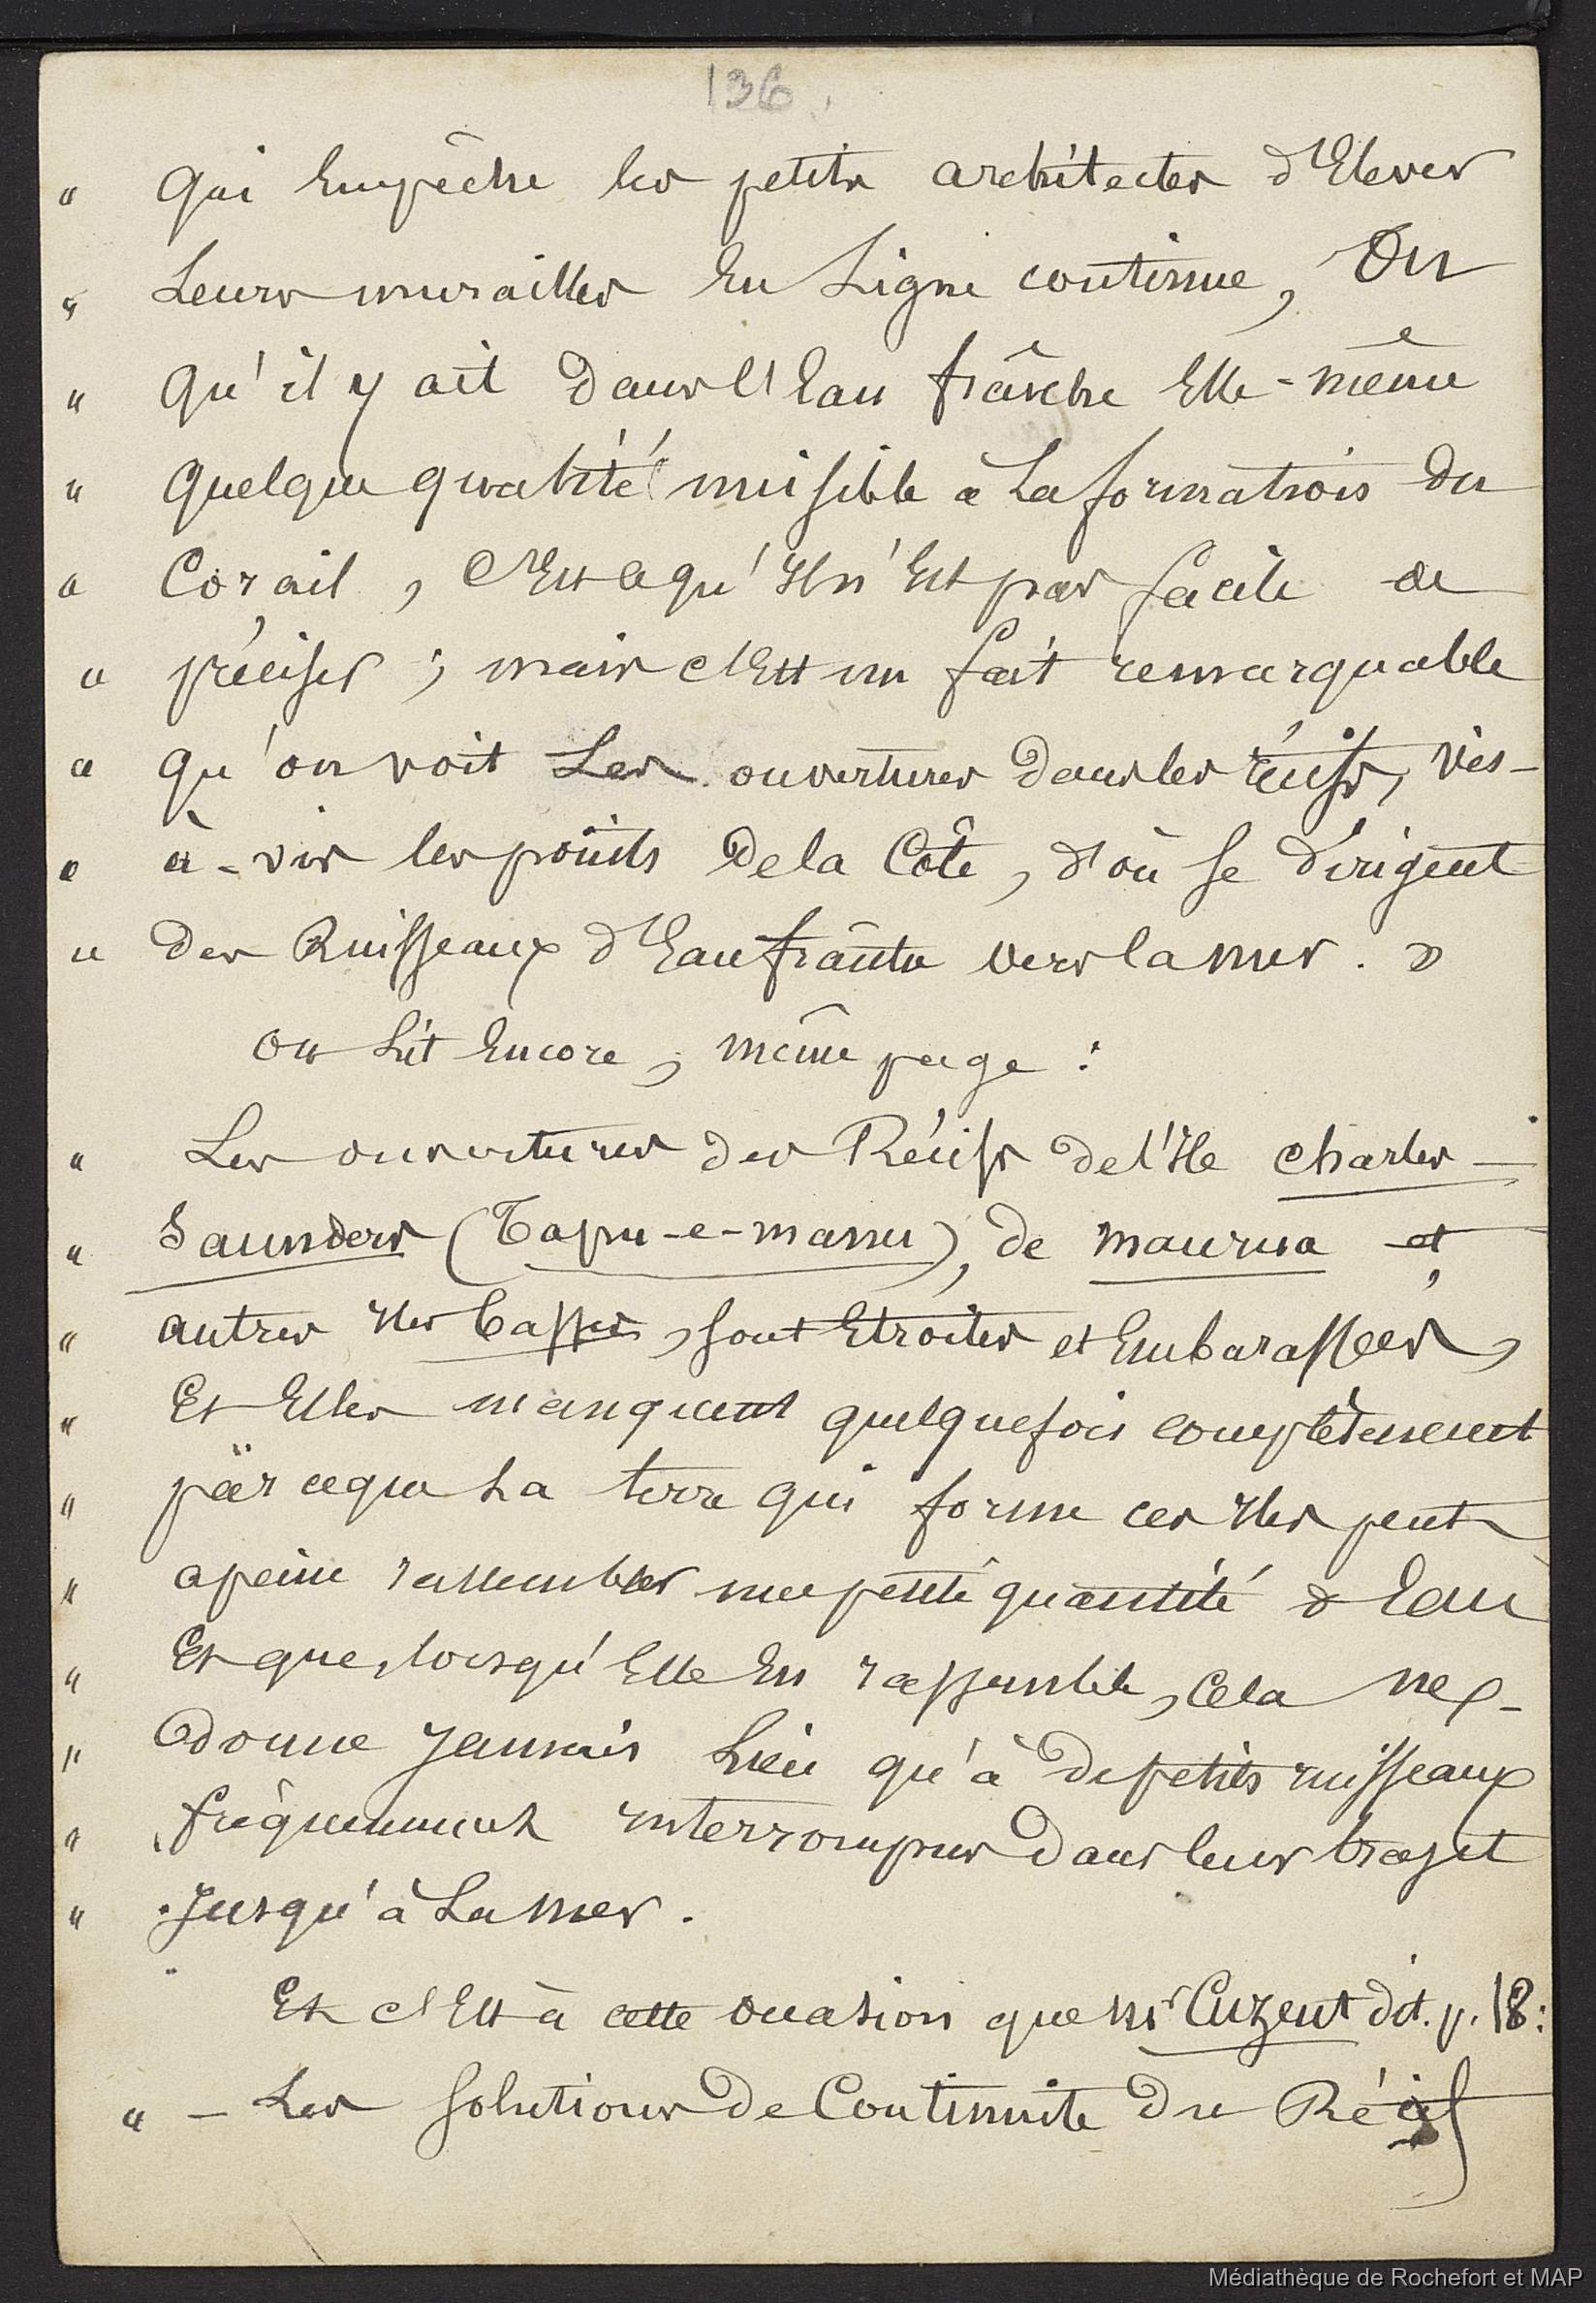 136.
" qui Empêche les petits architectes d'Elever
" Leurs murailles En Ligne continue, Ou
" qu'il y ait dans l'Eau fraîche Elle-même
" quelque qualité nuisible à La formation du
" Corail, c'Est ce qu'Il n'Est pas facile de
" préciser ; mais c'Est un fait remarquable
" qu'on voit Les ouvertures dans les récifs, vis-
" à-vis les points de la Côte, d'où se dirigent
" des Ruisseaux d'Eau fraîche vers la mer. »
On Lit Encore, même page :
" Les ouvertures des Récifs de l'Ile Charles
" Saunders (Tapu-e-manu), de maurua et
" autres Iles basses, sont Etroites et Embarassées,
" Et Elles manquent quelquefois complètement
" parceque La terre qui forme ces Iles peut
" apeine rassembler une petite quantité d'Eau
" Et que, lorsqu'Elle En rassemble, cela ne
" donne Jamais Lieu qu'à de petits ruisseaux
" fréquemment interrompus dans leur trajet
" Jusqu'à La mer.
Et c'Est à cette occasion que Mr Cuzent dit. p. 18 :
" – Les solutions de Continuite du Récif
Médiathèque de Rochefort et MAP